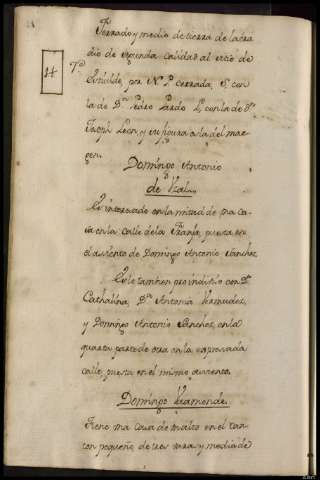 Ferrado y medio de tierra de labra
dio de segunda calidad al sitio de
por N.e cerrada, P. con
la de Dn. Pedro Pardo L. con la de Dn.
Joseph Leon, y su figura a la del mar
gen.
14
Domingo Antonio
de
Es interesado en la mitad de una ca
sa en la calle de la puesta en
el asiento de Domingo Antonio Sanchez
Es le tambien proindiviso con Da.
Cathalina, Da. Antonia Bermudez,
y Domingo Antonio Sanchez en la
quarta parte de otra en la expresada
calle puesta en el mismo asiento.
Domingo Bamonde.
Tiene una casa de un alto en el can
ton pequeño de tres varas y media de